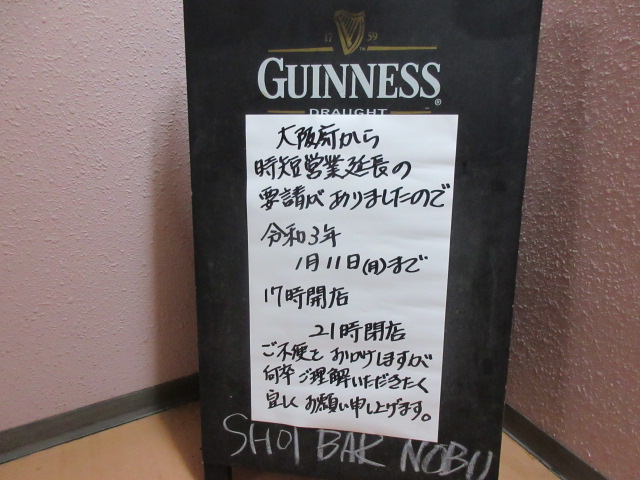 17 59
GUINNESS
DRAUGHT
大阪府から
時短営業延長の
要請がありましたので
令和3年
1月11日(月)まで
17時開店
21時閉店
ご不便を おかけしますが
何卒ご理解いただきたく
宜しくお願い申し上げます。
SHOT BAR NOBU